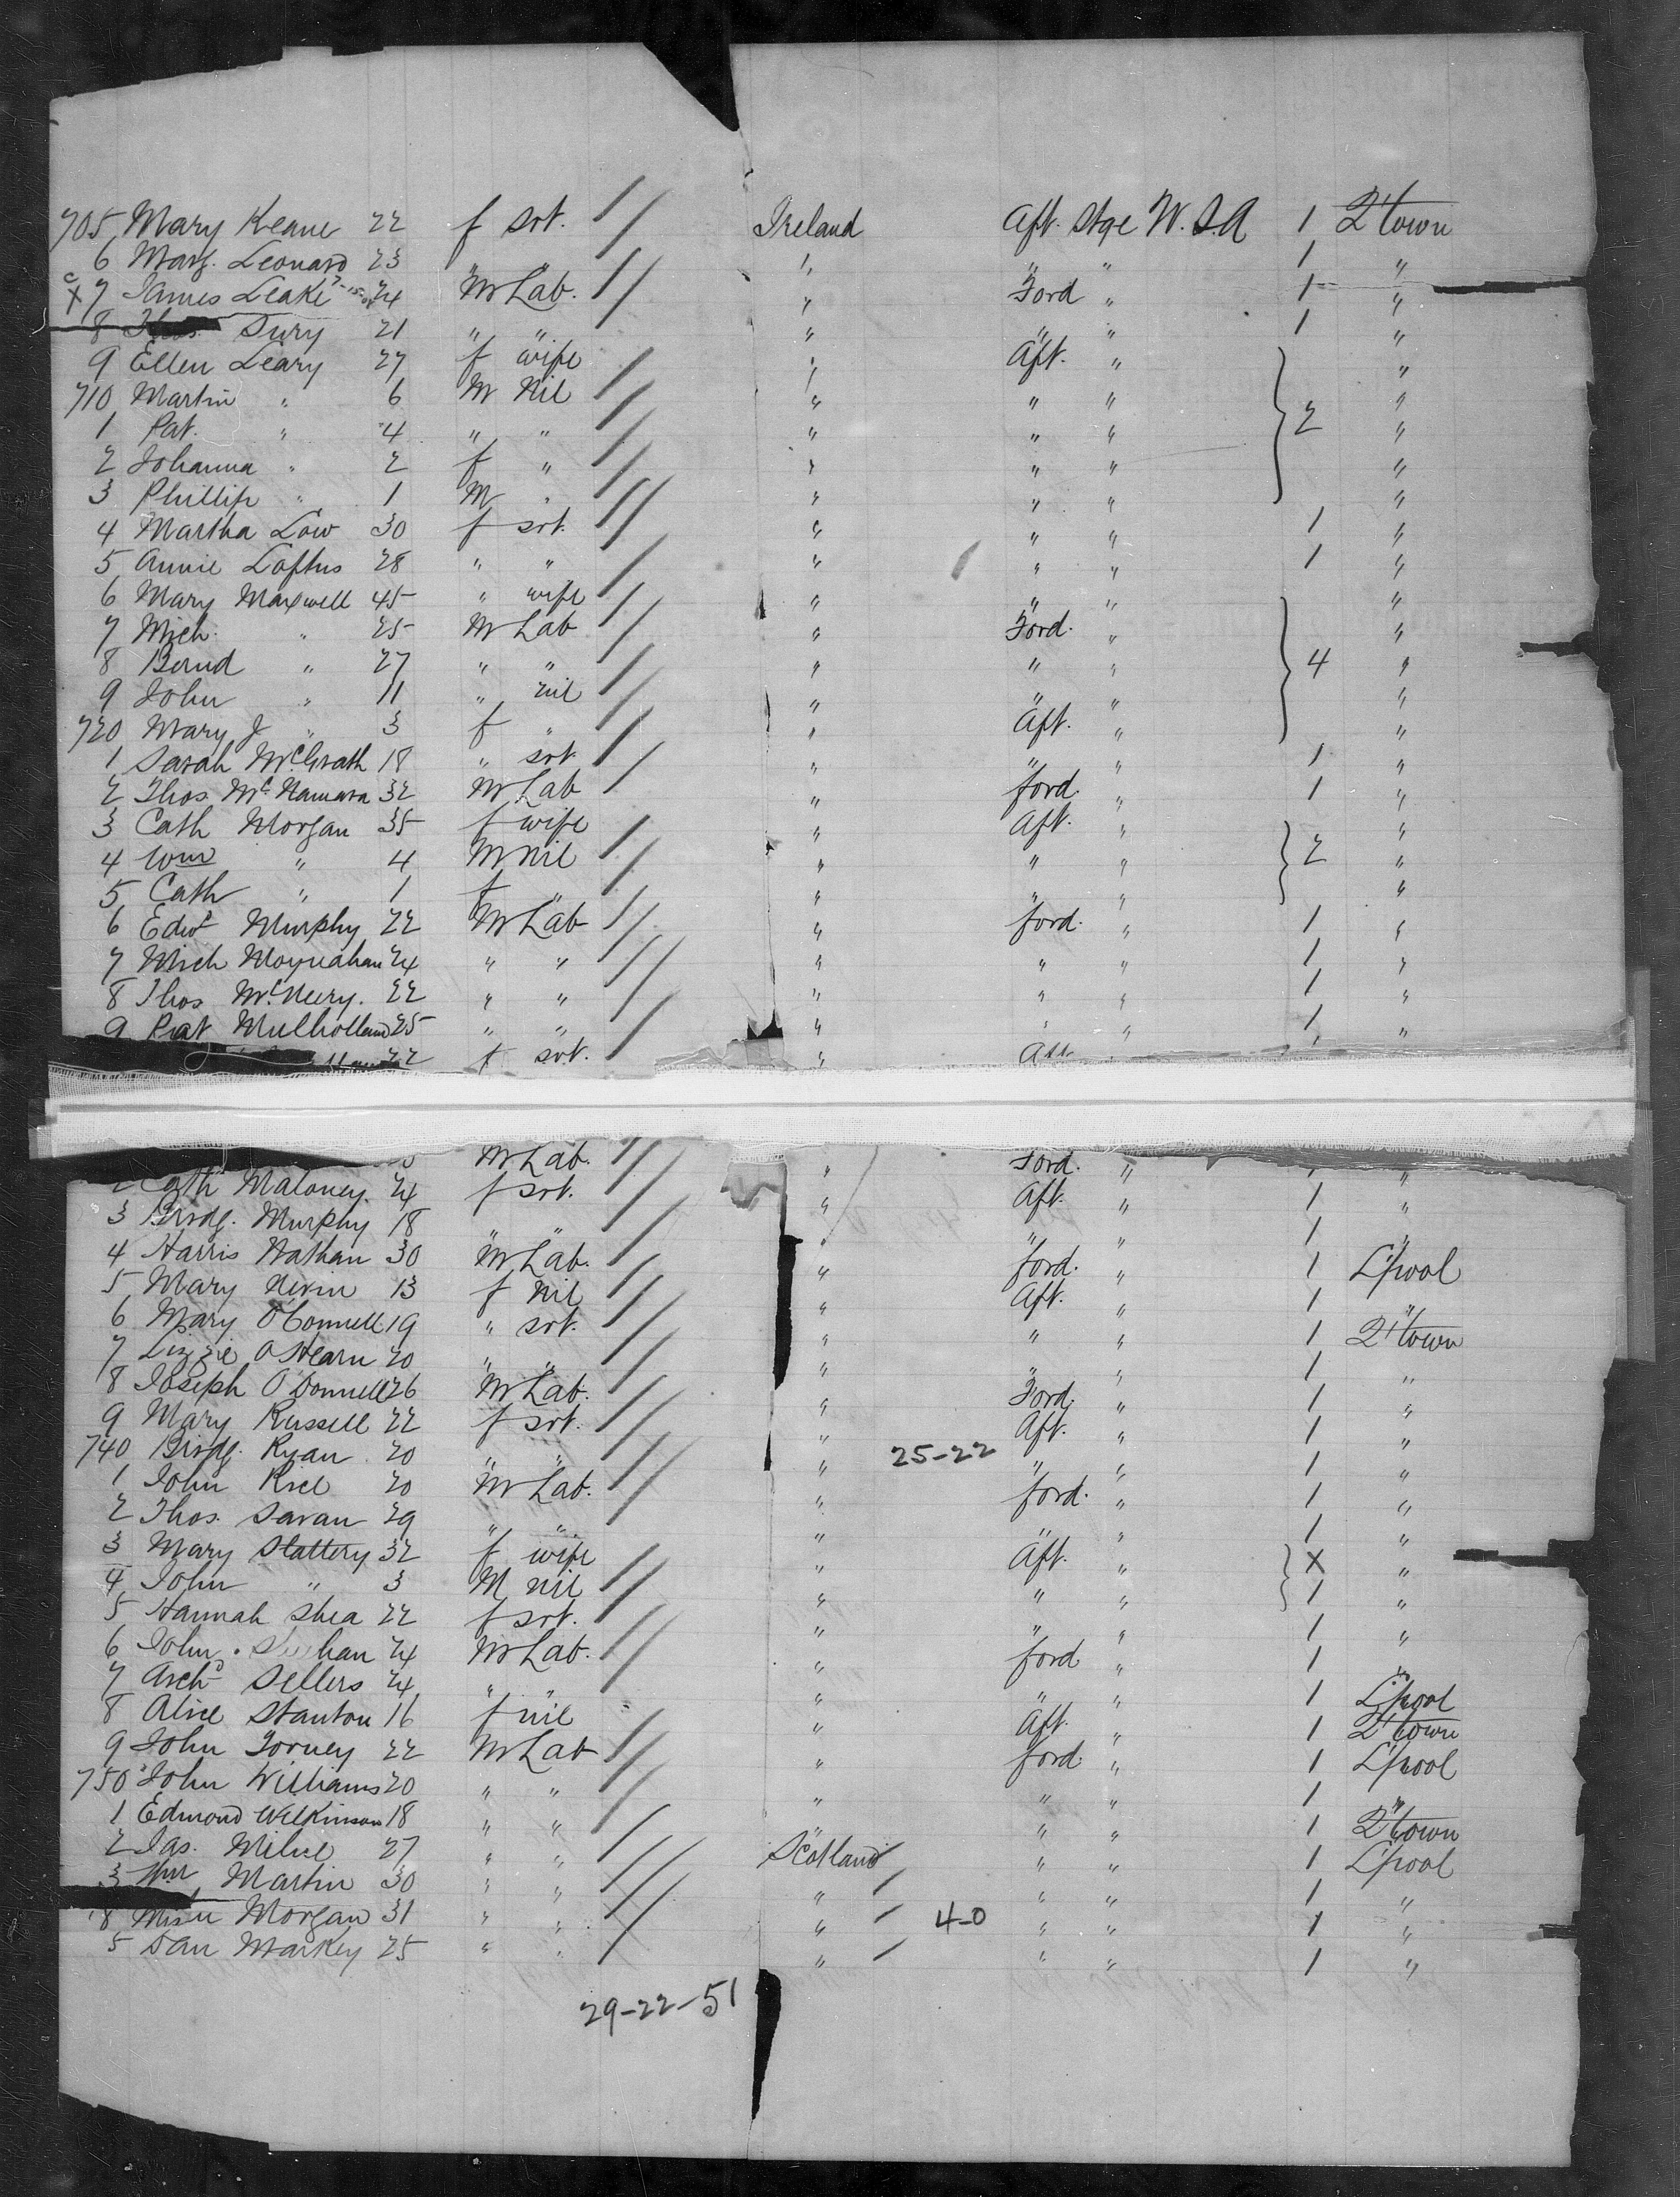 705 Mary Keane 22 f srt. Ireland Aft. Stge U.S.A 1 Q'town
6 Marg. Leonard 23 " " " " " 1 "
c x 7 James Leake 24 M Lab. " Ford " 1 "
8 Thos. Sury 21 " " " " " 1 "
9 Ellen Leary 27 f wife " Aft. " "
710 Martin " 6 M Nil " " " "
1 Pat. " 4 " " " " " 2 "
2 Johanna " 2 f " " " " "
3 Phillip " 1 M " " " " "
4 Martha Low 30 f srt. " " " 1 "
5 Annie Loftus 28 " " " " " 1 "
6 Mary Maxwell 45 " wife " " " "
7 Mich. " 25 M Lab " Ford. " "
8 Bernd " 27 " " " " " 4 "
9 John " 11 " nil " " " "
720 Mary J " 3 f " " Aft. " "
1 Sarah McGrath 18 " srt " " " 1 "
2 Thos. McNamara 32 M Lab " ford. " 1 "
3 Cath Morgan 35 f wife " Aft. " "
4 Wm " 4 M nil " " " 2 "
5 Cath " 1 f " " " " "
6 Edwd Murphy 22 M Lab " ford. " 1 "
7 Mich Moynahan 24 " " " " " 1 "
8 Thos McNeery. 22 " " " " " 1 "
9 Pat Mulholland 25 " " " " " 1 "
22 f srt. " Aft
M Lab. " Ford. " "
2 Cath Maloney. 24 f srt. " Aft. " 1 "
3 Bridg. Murphy 18 " " " " " 1 "
4 Harris Nathan 30 M Lab. " ford. " 1 L'pool
5 Mary Nevin 13 f Nil " Aft. " 1 "
6 Mary O'Connell 19 " srt. " " " 1 Q'town
7 Lizzie O'Hearn 20 " " " " " 1 "
8 Joseph O'Donnell 26 M Lab. " Ford. " 1 "
9 Mary Russell 22 f srt. " Aft. " 1 "
740 Bridg. Ryan 20 " " " 25-22 " " 1 "
1 John Rice 20 M Lab. " ford. " 1 "
2 Thos. Savan 29 " " " " " 1 "
3 Mary Slattery 32 f wife " Aft. " X "
4 John " 3 M nil " " " 1 "
5 Hannah Shea 22 f srt. " " " 1 "
6 John 24 M Lab. " ford " 1 "
7 Archd Sellers 24 " " " " " 1 L'pool
8 Alice Stanton 16 f nil " Aft. " 1 Q'town
9 John Torney 22 M Lab " ford. " 1 L'pool
750 John Williams 20 " " " " " 1 "
1 Edmond Wilkinson 18 " " " " " 1 Q'town
2 Jas. Milne 27 " " Scotland " " 1 L'pool
3 Wm Martin 30 " " " " " 1 "
Morgan 31 " " " 4-0 " " 1 "
5 Dan Markey 25 " " " " " 1 "
29-22-51